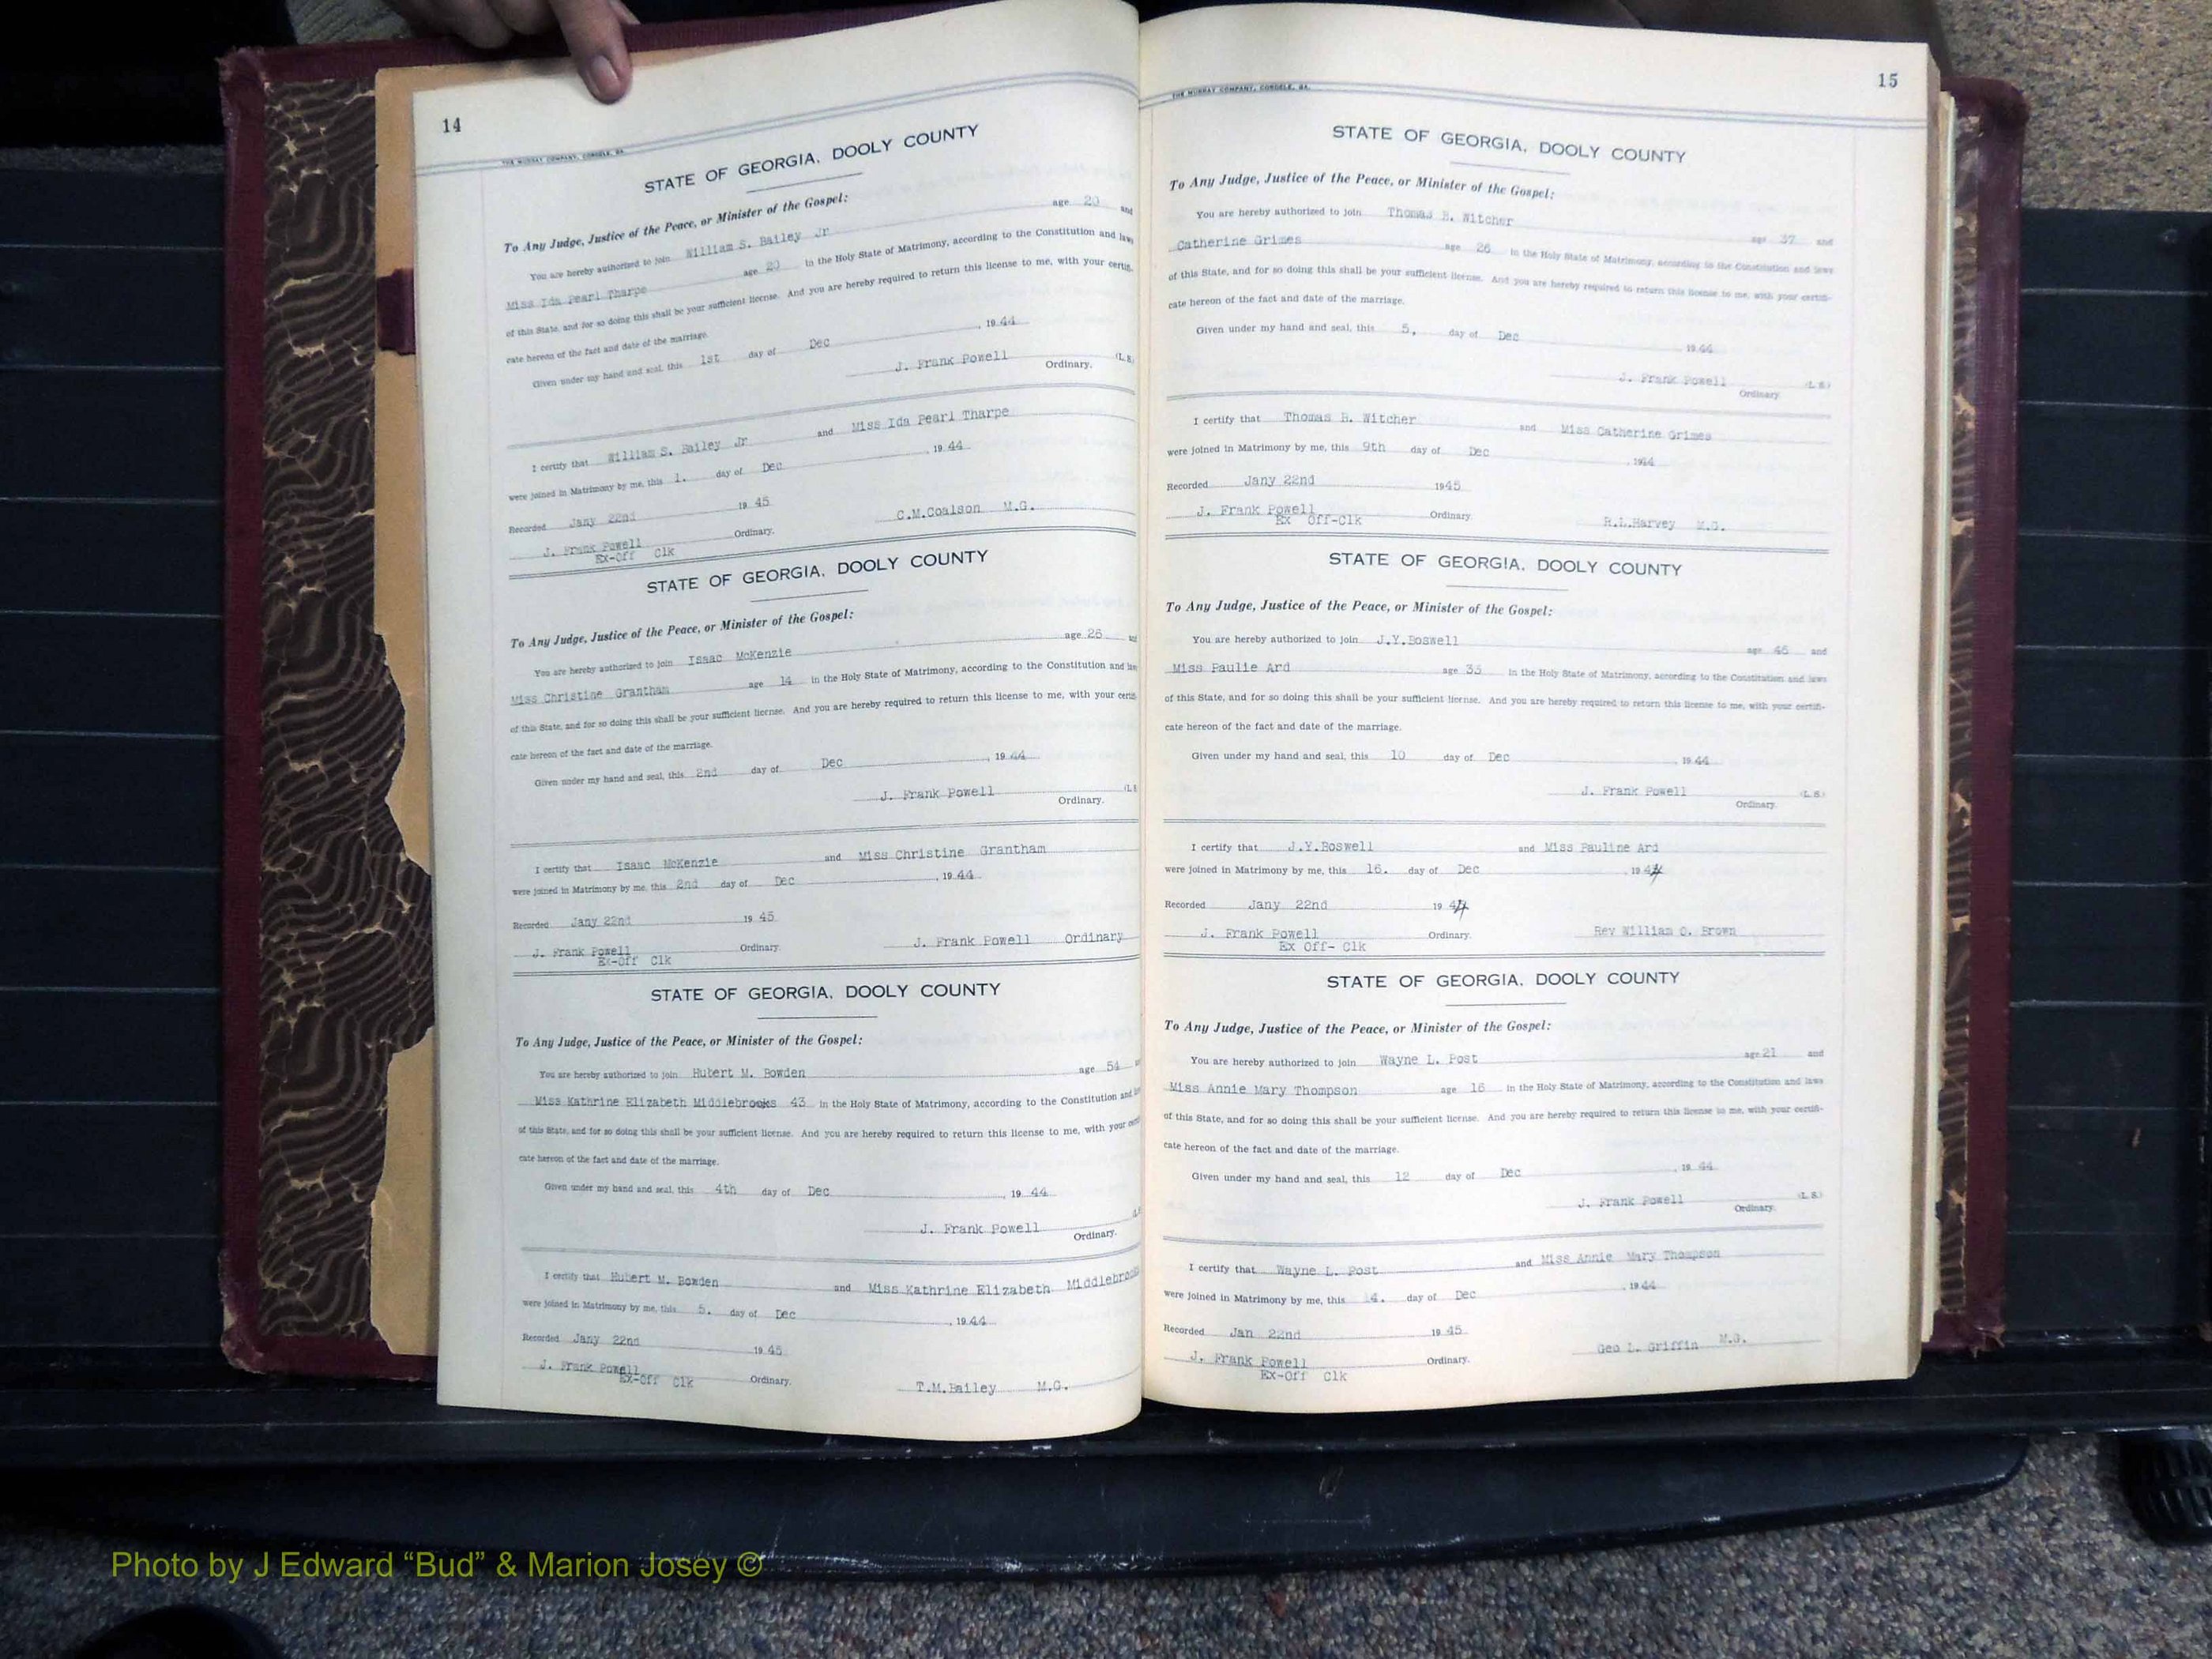 14
THE MURRAY COMPANY, CORDELE, GA.
STATE OF GEORGIA, DOOLY COUNTY
To Any Judge, Justice of the Peace, or Minister of the Gospel:
You are hereby authorized to join William S. Bailey Jr age 20 and
Miss Ida Pearl Tharpe age 20 in the Holy State of Matrimony, according to the Constitution and laws
of this State, and for so doing this shall be your sufficient license. And you are hereby required to return this license to me, with your certifi-
cate hereon of the fact and date of the marriage.
Given under my hand and seal, this 1st day of Dec, 1944
J. Frank Powell (L. S.)
Ordinary.
I certify that William S. Bailey Jr and Miss Ida Pearl Tharpe
were joined in Matrimony by me, this 1. day of Dec, 1944
Recorded Jany 22nd 1945
J. Frank Powell Ordinary. C.M.Coalson M.G.
Ex-Off Clk
STATE OF GEORGIA, DOOLY COUNTY
To Any Judge, Justice of the Peace, or Minister of the Gospel:
You are hereby authorized to join Isaac McKenzie age 26 and
Miss Christine Grantham age 14 in the Holy State of Matrimony, according to the Constitution and laws
of this State, and for so doing this shall be your sufficient license. And you are hereby required to return this license to me, with your certifi-
cate hereon of the fact and date of the marriage.
Given under my hand and seal, this 2nd day of Dec, 1944
J. Frank Powell (L. S.)
Ordinary.
I certify that Isaac McKenzie and Miss Christine Grantham
were joined in Matrimony by me, this 2nd day of Dec, 1944
Recorded Jany 22nd 1945
J. Frank Powell Ordinary. J. Frank Powell Ordinary
Ex-Off Clk
STATE OF GEORGIA, DOOLY COUNTY
To Any Judge, Justice of the Peace, or Minister of the Gospel:
You are hereby authorized to join Hubert M. Bowden age 54
Miss Kathrine Elizabeth Middlebrooks 43 in the Holy State of Matrimony, according to the Constitution and
of this State, and for so doing this shall be your sufficient license. And you are hereby required to return this license to me, with your
cate hereon of the fact and date of the marriage.
Given under my hand and seal, this 4th day of Dec, 1944
J. Frank Powell
Ordinary.
I certify that Hubert M. Bowden and Miss Kathrine Elizabeth Middlebrooks
were joined in Matrimony by me, this 5. day of Dec, 1944
Recorded Jany 22nd 1945
J. Frank Powell Ordinary. T.M.Bailey M.G.
Ex-Off Clk
15
THE MURRAY COMPANY, CORDELE, GA.
STATE OF GEORGIA, DOOLY COUNTY
To Any Judge, Justice of the Peace, or Minister of the Gospel:
You are hereby authorized to join Thomas B. Witcher age 37 and
Catherine Grimes age 26 in the Holy State of Matrimony, according to the Constitution and laws
of this State, and for so doing this shall be your sufficient license. And you are hereby required to return this license to me, with your certifi-
cate hereon of the fact and date of the marriage.
Given under my hand and seal, this 5. day of Dec 1944
J. Frank Powell (L. S.)
Ordinary.
I certify that Thomas B. Witcher and Miss Catherine Grimes
were joined in Matrimony by me, this 9th day of Dec, 1944
Recorded Jany 22nd 1945
J. Frank Powell Ordinary. R.L.Harvey M.G.
Ex Off-Clk
STATE OF GEORGIA, DOOLY COUNTY
To Any Judge, Justice of the Peace, or Minister of the Gospel:
You are hereby authorized to join J.Y.Boswell age 46 and
Miss Paulie Ard age 35 in the Holy State of Matrimony, according to the Constitution and laws
of this State, and for so doing this shall be your sufficient license. And you are hereby required to return this license to me, with your certifi-
cate hereon of the fact and date of the marriage.
Given under my hand and seal, this 10 day of Dec, 1944
J. Frank Powell (L. S.)
Ordinary.
I certify that J.Y.Boswell and Miss Pauline Ard
were joined in Matrimony by me, this 16. day of Dec, 1944
Recorded Jany 22nd 19
J. Frank Powell Ordinary. Rev William O. Brown
Ex Off- Clk
STATE OF GEORGIA, DOOLY COUNTY
To Any Judge, Justice of the Peace, or Minister of the Gospel:
You are hereby authorized to join Wayne L. Post age 21 and
Miss Annie Mary Thompson age 16 in the Holy State of Matrimony, according to the Constitution and laws
of this State, and for so doing this shall be your sufficient license. And you are hereby required to return this license to me, with your certifi-
cate hereon of the fact and date of the marriage.
Given under my hand and seal, this 12 day of Dec, 1944
J. Frank Powell (L. S.)
Ordinary.
I certify that Wayne L. Post and Miss Annie Mary Thompson
were joined in Matrimony by me, this 4. day of Dec, 1944
Recorded Jan 22nd 1945
J. Frank Powell Ordinary. Geo L. Griffin M.G.
Ex-Off Clk
Photo by J Edward “Bud” & Marion Josey ©